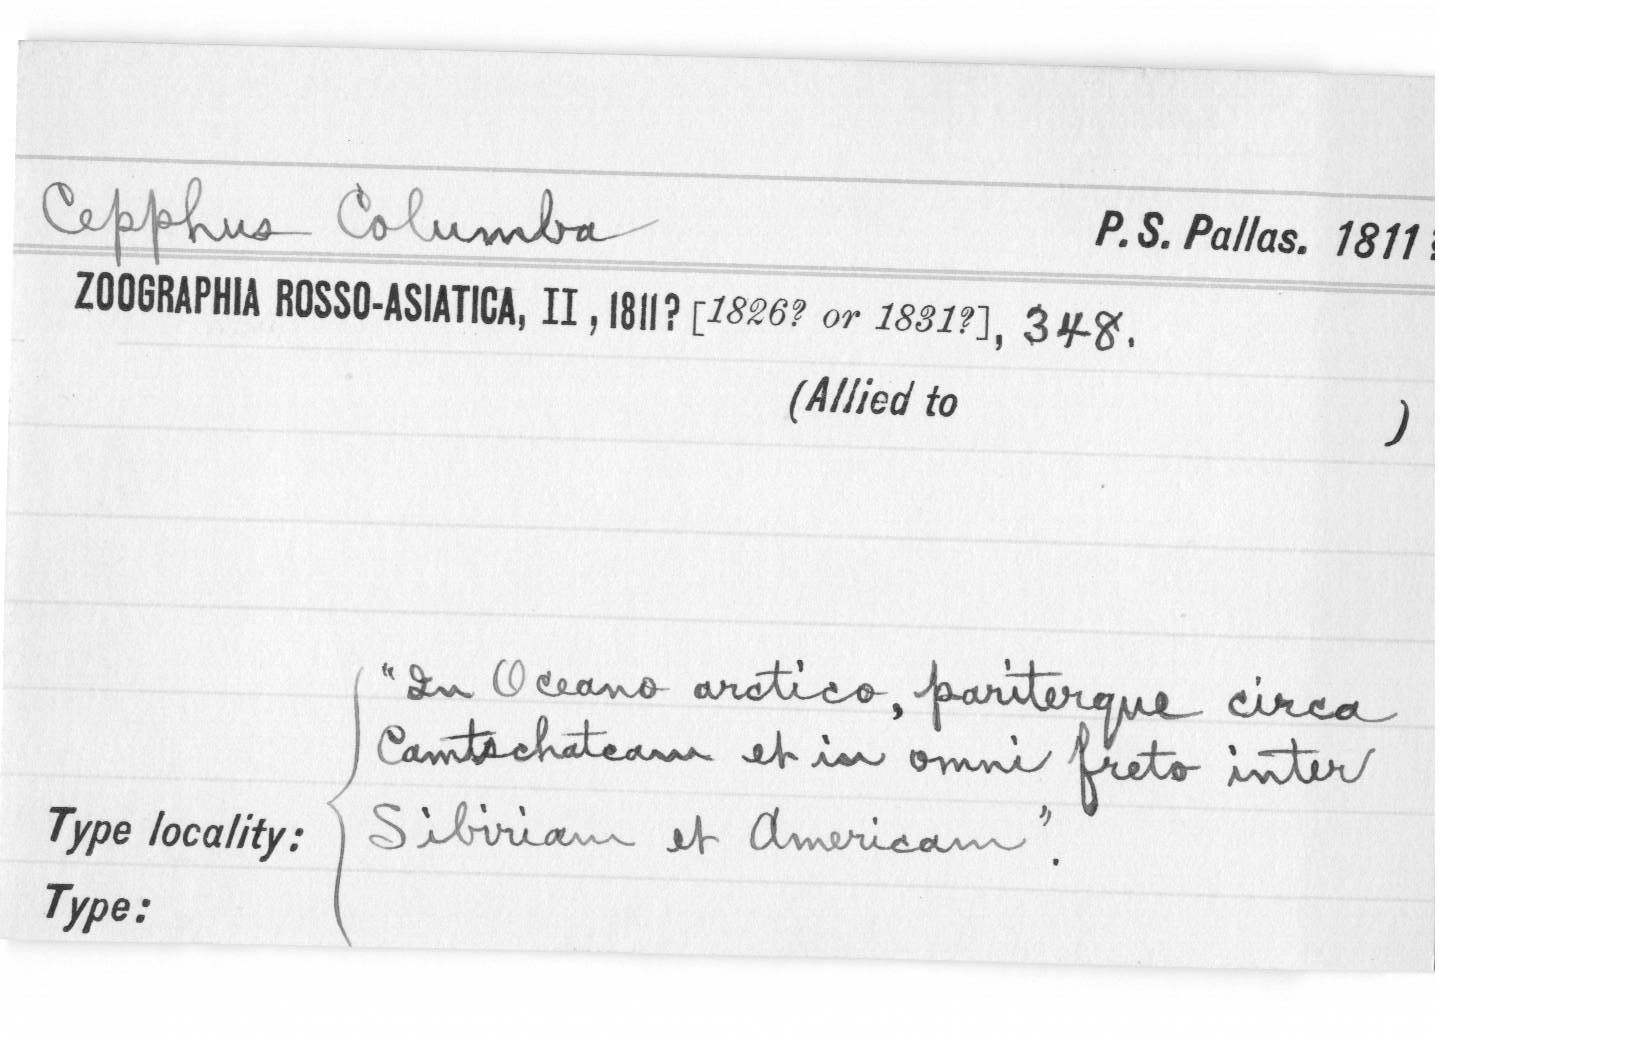 Cepphus Columba P. S. Pallas. 1811?
ZOOGRAPHIA ROSSO-ASIATICA, II, 1811? [1826? or 1831?], 348.
(Allied to )
"In Oceano arctico, pariterque circa
Camtschatcam et in omni freto inter
Type locality: Sibiriam et Americam".
Type: